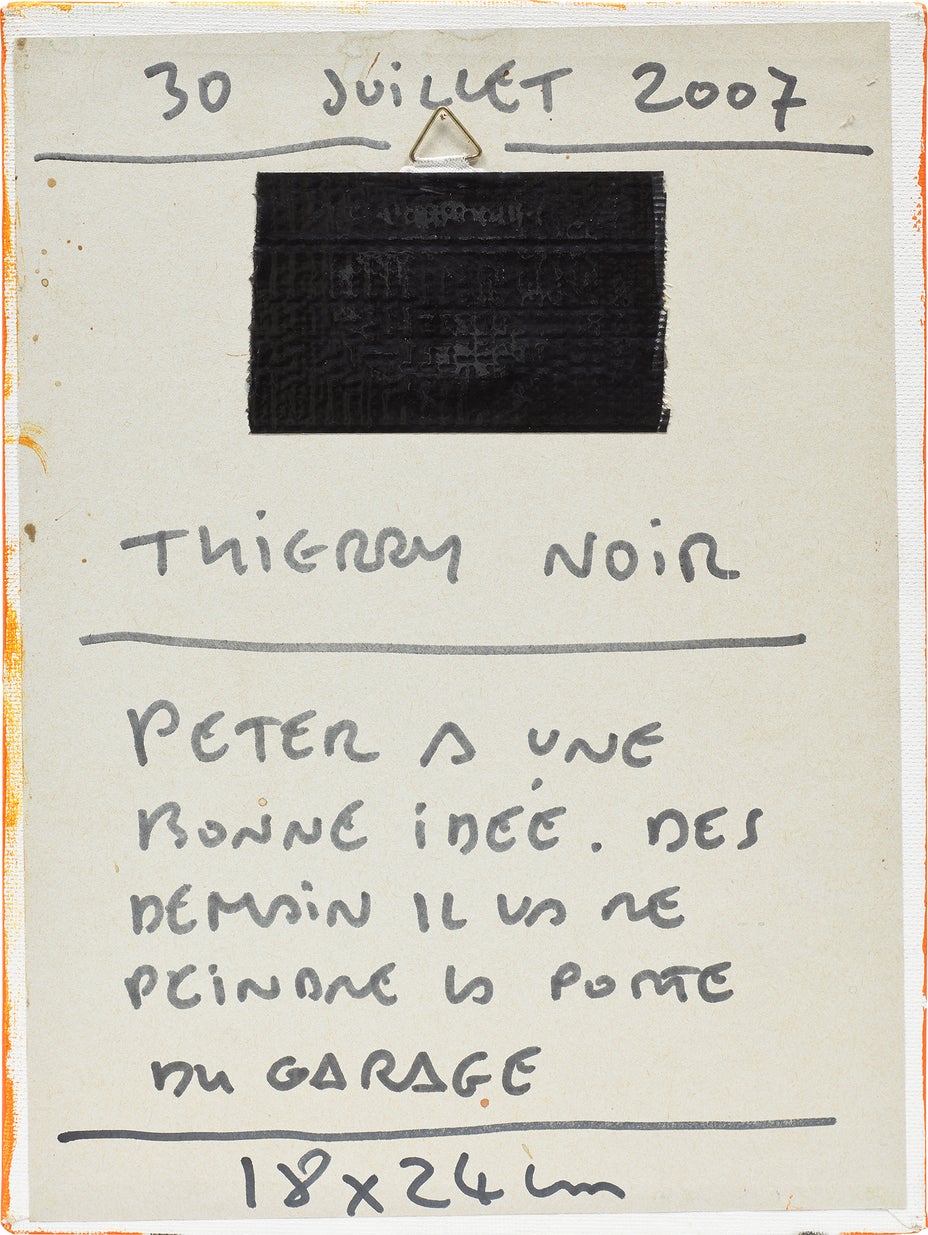 30 JUILLET 2007
THIERRY NOIR
PETER A UNE
BONNE IDÉE. DES
DEMAIN IL VA RE
PEINDRE LA PORTE
DU GARAGE
18x24cm